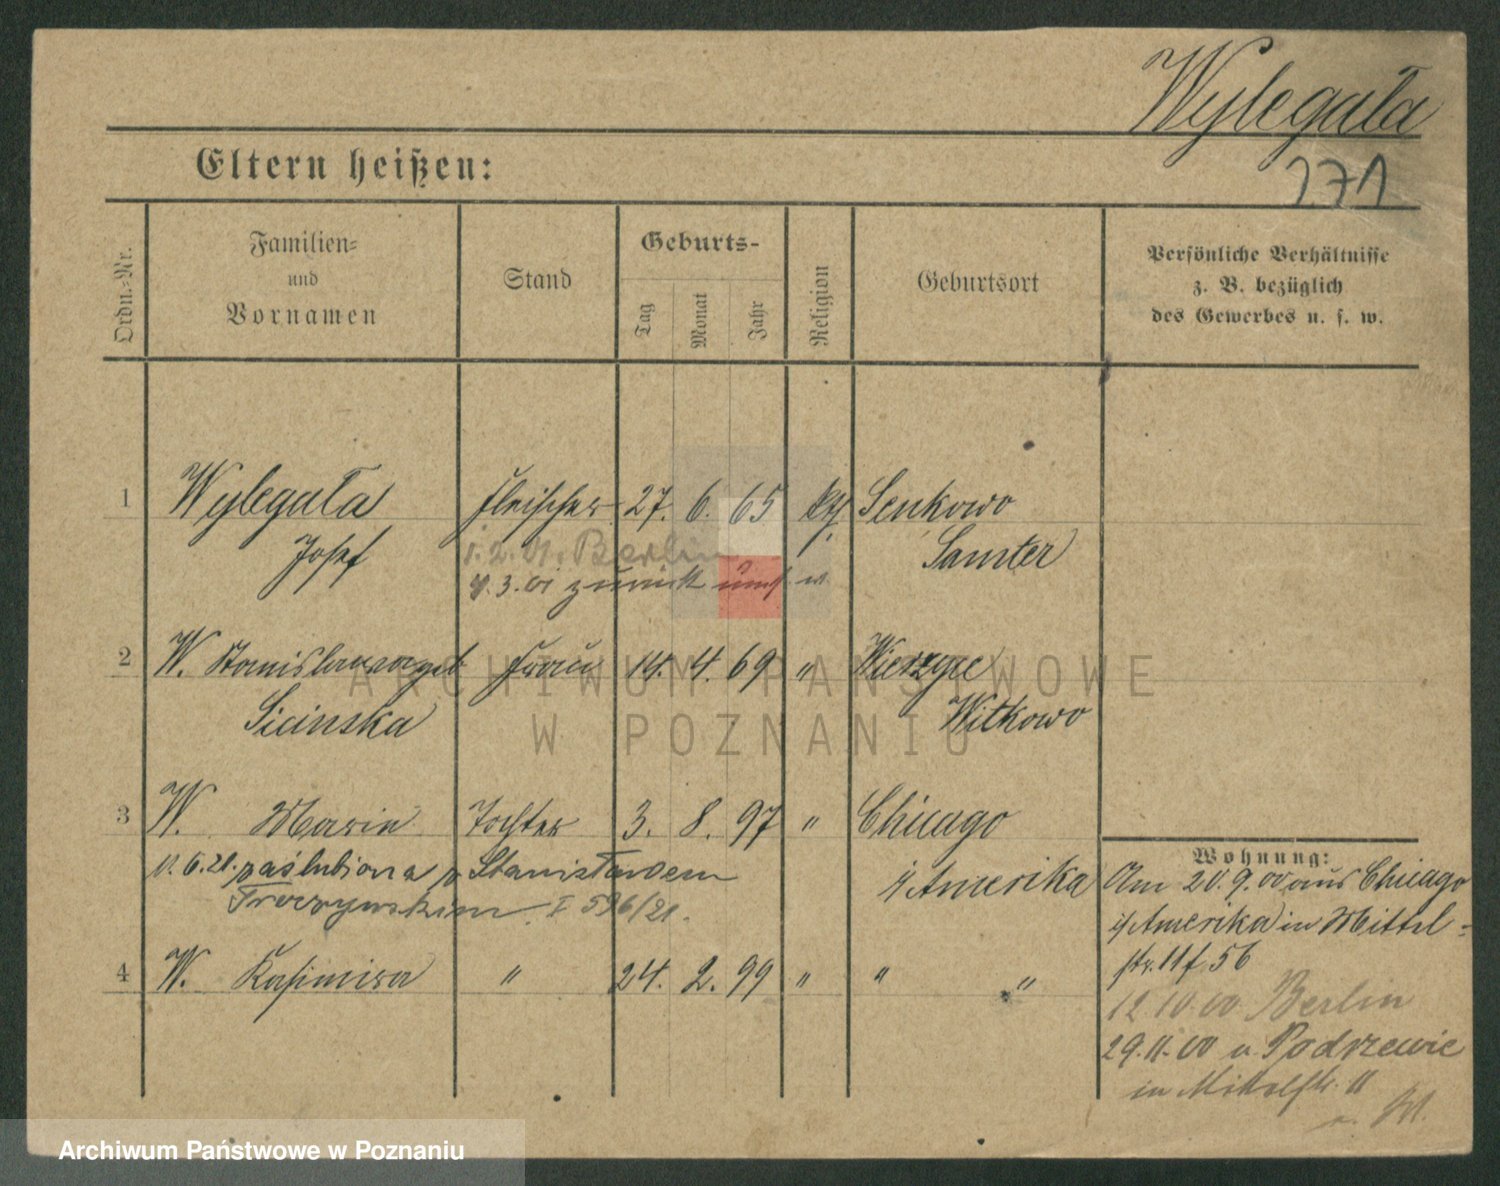 Wylegała
171
Eltern heißen:
Ordn.-Nr.
Familien-
und
Vornamen
Stand
Geburts-
Tag
Monat
Jahr
Religion
Geburtsort
Persönliche Verhältnisse
z. B. bezüglich
des Gewerbes u. s. w.
1 Wylegała Fleischer 27. 6. 65 kth. Senkowo
Josef Samter
1.2.01. Berlin
3.01 zurück
2 W. Stanislawa geb Frau 14. 4. 69 " Wierzyce
Sicinska Witkowo
3 W. Maria Tochter 3. 8. 97 " Chicago
i/Amerika
6.21. zaślubiona z Stanisławem
I 596/21.
4 W. Kasimira " 24. 2. 99 " " "
Wohnung:
Am 20.9.00 aus Chicago
i/Amerika in Mittel-
str. 11 f. 56
12.10.00 Berlin
29.11.00 v Podrzewie
in Mittelstr. 11
ARCHIWUM PAŃSTWOWE
W POZNANIU
Archiwum Państwowe w Poznaniu